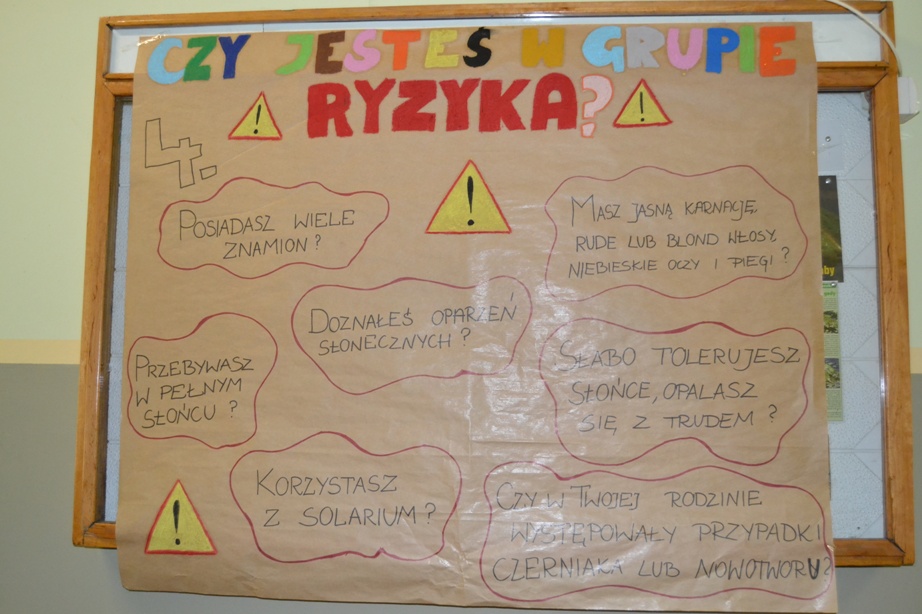 CZY JESTEŚ W GRUPIE
RYZYKA?
4.
POSIADASZ WIELE
ZNAMION?
MASZ JASNĄ KARNACJĘ,
RUDE LUB BLOND WŁOSY,
NIEBIESKIE OCZY I PIEGI?
DOZNAŁEŚ OPARZEŃ
SŁONECZNYCH?
PRZEBYWASZ
W PEŁNYM
SŁOŃCU?
SŁABO TOLERUJESZ
SŁOŃCE, OPALASZ
SIĘ Z TRUDEM?
KORZYSTASZ
Z SOLARIUM?
CZY W TWOJEJ RODZINIE
WYSTĘPOWAŁY PRZYPADKI
CZERNIAKA LUB NOWOTWORU?